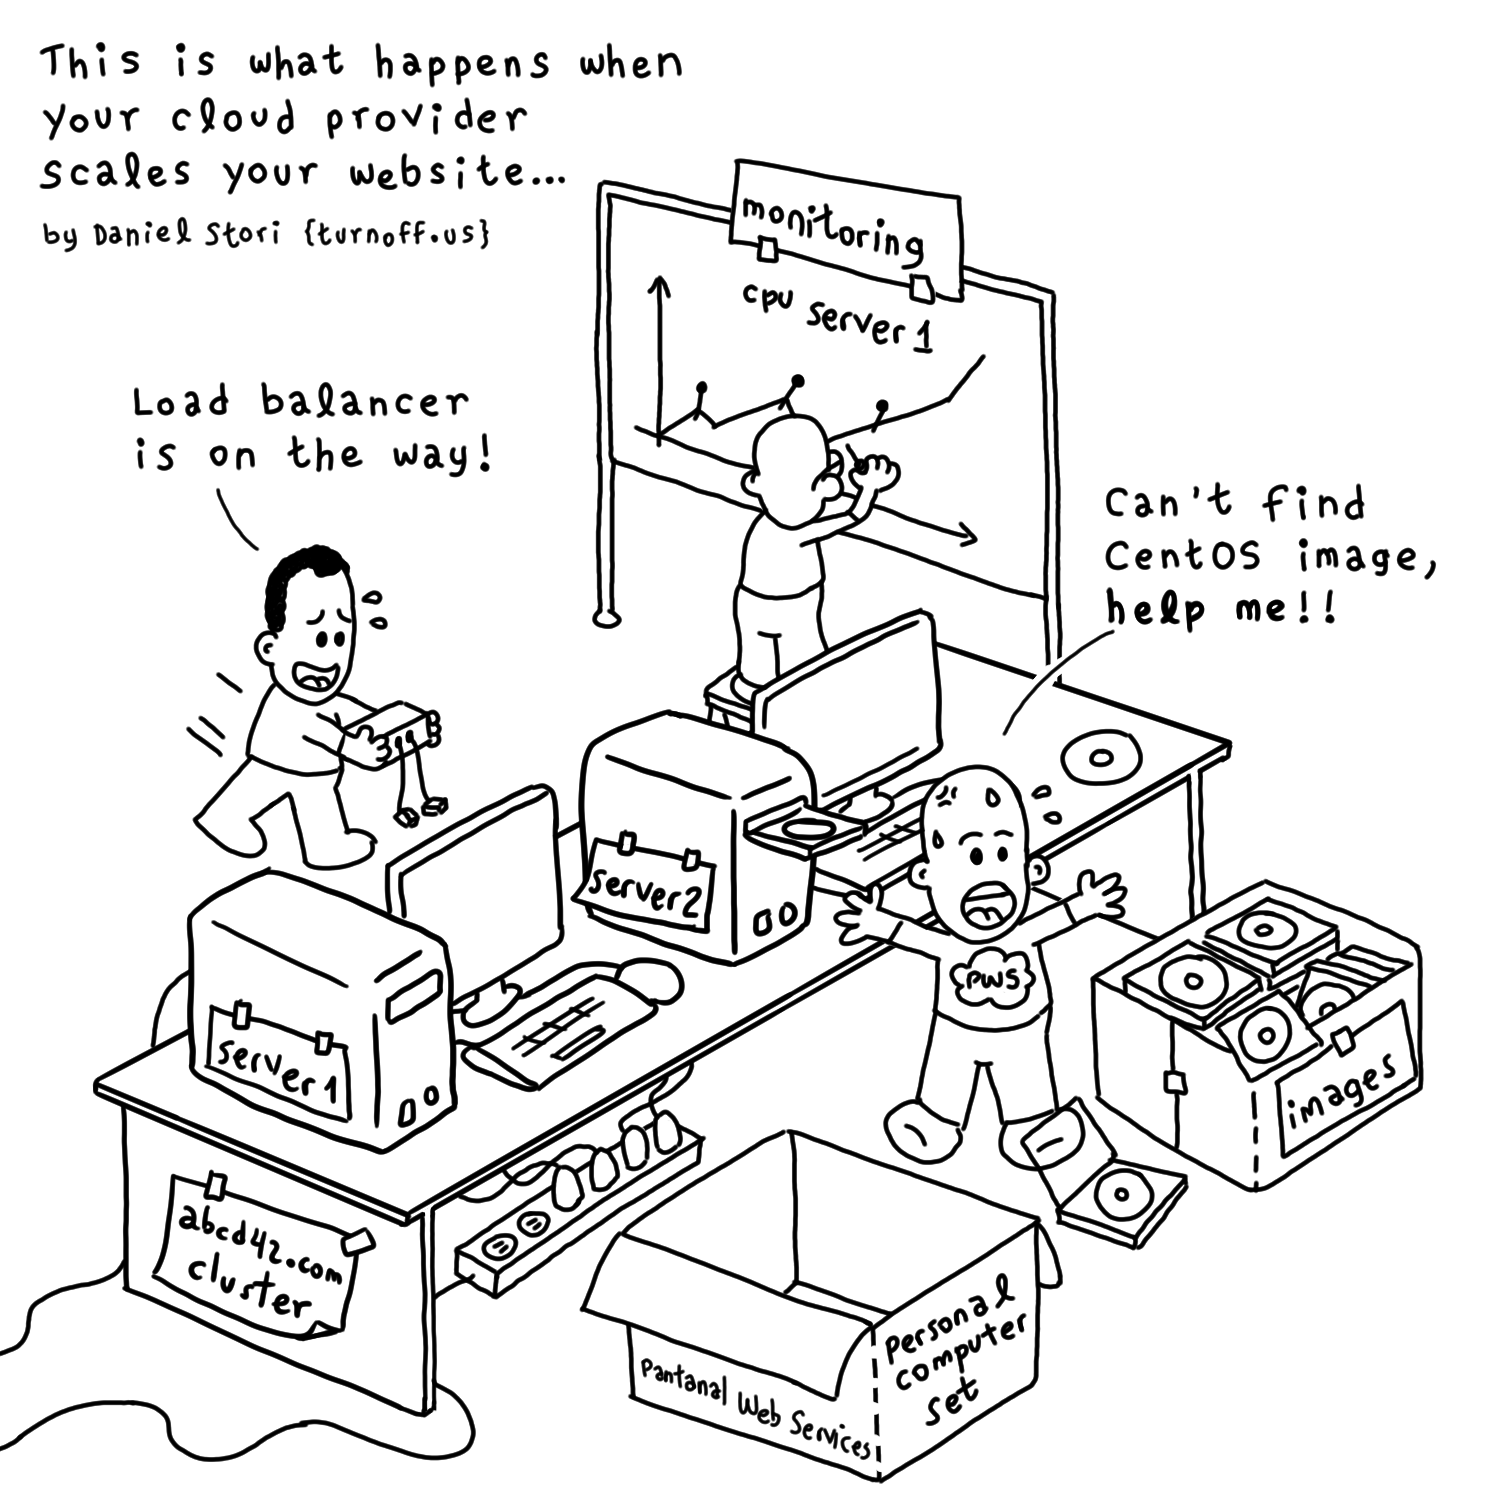 This is what happens when
your cloud provider
scales your website...
by Daniel Stori {turnoff.us}
monitoring
cpu server 1
Load balancer
is on the way!
Can't find
CentOS image,
help me!!
server2
PWS
server 1
images
abcd42.com
cluster
Personal
computer
set
Pantanal Web Services